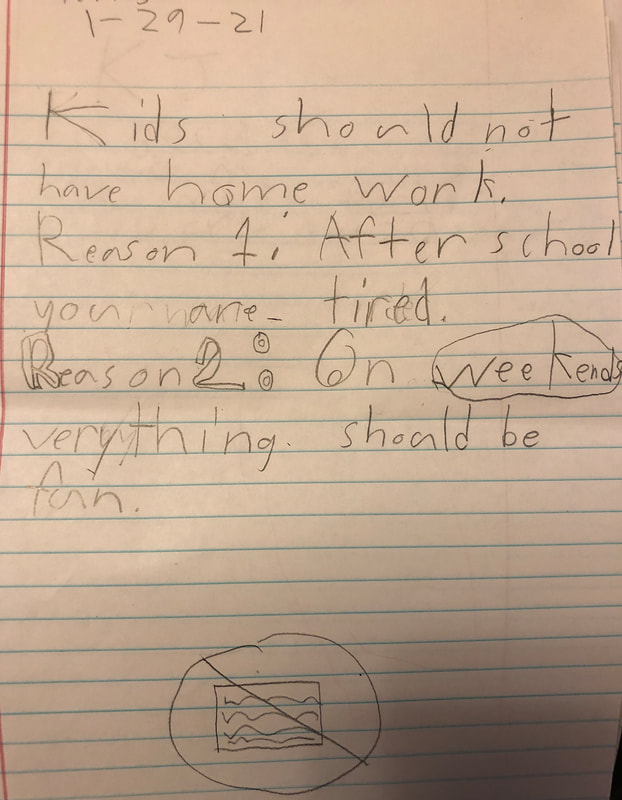 1-29-21
Kids should not
have home work.
Reason 1: After school
your tired.
Reason 2: On weekends
verything. should be
fun.